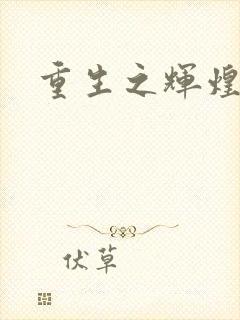 重生之輝煌
伏草